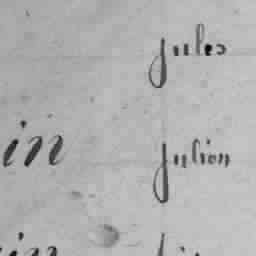 jules
in julion